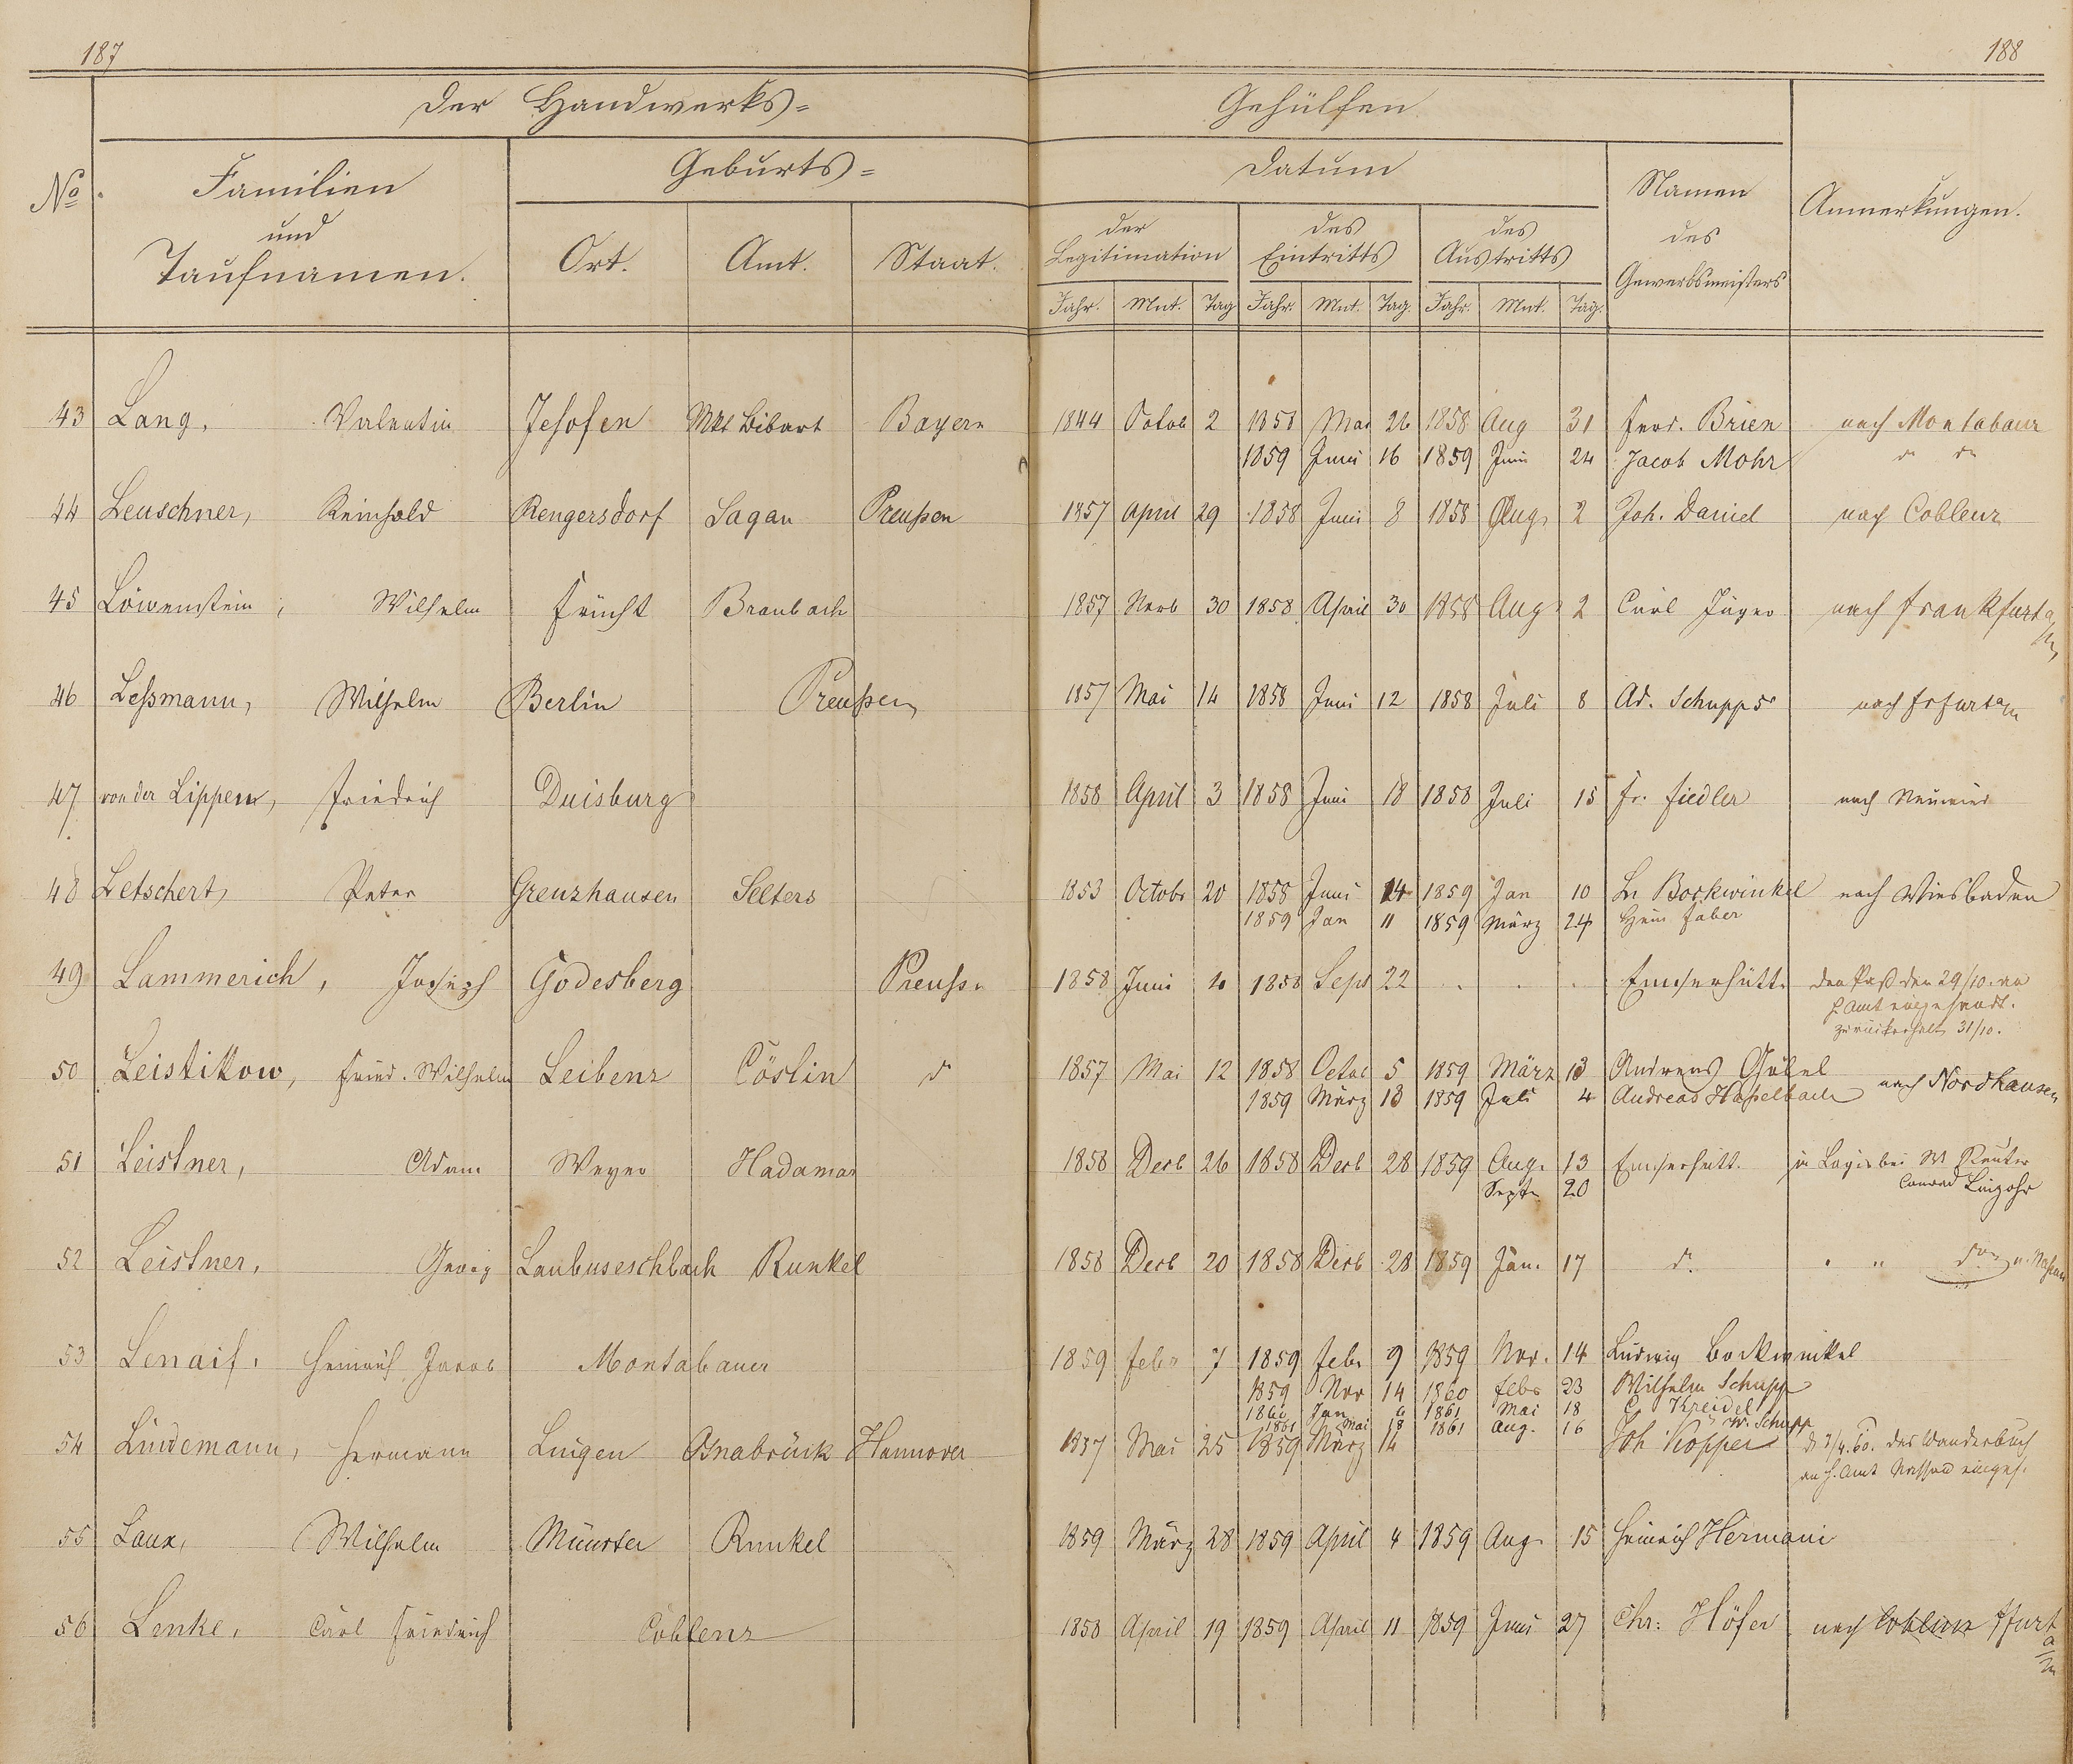 187
188
Der Handwerks=
Gehülfen
No.
Familien
und
Taufnamen.
Geburts=
Ort.
Amt.
Staat.
Datum
der
Legitimation
des
Eintritts
des
Austritts
Jahr. Mnt. Tag Jahr. Mnt. Tag. Jahr. Mnt. Tag.
Namen
des
Gewerbsmeisters
Anmerkungen.
43 Lang, Valentin Mkt Bibart Bayern 1844 Octob 2 1858 Mai 26 1858 Aug 31 Ferd. Brien nach Montabaur
1859 Juni 16 1859 Juni 24 Jacob Mohr do do
44 Leuschner, Reinhold Rengersdorf Sagan Preußen 1857 April 29 1858 Juni 8 1858 Aug. 2 Joh. Daniel nach Coblenz
45 Löwenstein, Wilhelm Frücht Braubach 1857 Novb 30 1858 April 30 1858 Aug 2 Carl Jäger nach Frankfurt a/M
46 Leßmann, Wilhelm Berlin Preußen 1857 Mai 14 1858 Juni 12 1858 Juli 8 Ad. Schupp nach
47 von der Lippen, Friedrich Duisburg 1858 April 3 1858 Juni 18 1858 Juli 15 Fr. Fiedler nach Neuwied
48 Letschert, Peter Grenzhausen Selters 1853 Octobr 20 1858 Juni 14 1859 Jan 10 Bockwinkel nach Wiesbaden
1859 Jan 11 1859 März 24 Hein Faber
49 Lammerich, Joseph Godesberg Preuß. 1858 Juni 1858 Sept 22 . . . Emserhütte den Paß den 29/10. an
H. Amt eingesandt.
zurückerhalt 31/10.
50 Leistikow, Fried. Wilhelm Leibenz Cöslin do 1857 Mai 12 1858 Octob 5 1859 März 13 Andreas
1859 März 13 1859 Juli 4 Andreas Haßelbach nach Nordhausen
51 Leistner, Adam Weyer Hadamar 1858 Decb 26 1858 Decb 28 1859 Aug. 13 Emserhütt. in Logis bei W Reuter
Septr 20 Conrad Lingohr
52 Leistner, Georg Laubuseschbach Runkel 1858 Decb 20 1858 Decb 28 1859 Jan. 17 do " " do n. Naßau
53 Lenaif, Heinrich Jacob Montabauer 1859 Febr 7 1859 Febr 9 1859 Nov. 14 Ludwig Bockwinkel
1859 Nov 14 1860 Febr 23 Wilhelm Schupp
1860 Jan 6 1861 Mai 18 C. Kreidel
1861 Mai 18 1861 Aug. 16 W. Schupp
54 Lindemann, Hermann Lingen Osnabrück Hannover 1857 Mai 25 1859 März 14 Joh Kopper d 3/4. 60. das Wanderbuch
an H. Amt Nassau einges.
55 Laux, Wilhelm Münster Runkel 1859 März 28 1859 April 4 1859 Aug. 15 Heinrich Hermani
56 Lenke, Carl Friedrich Coblenz 1858 April 19 1859 April 11 1859 Juni 27 Chr: Höfer nach Coblenz Ffurt a/M